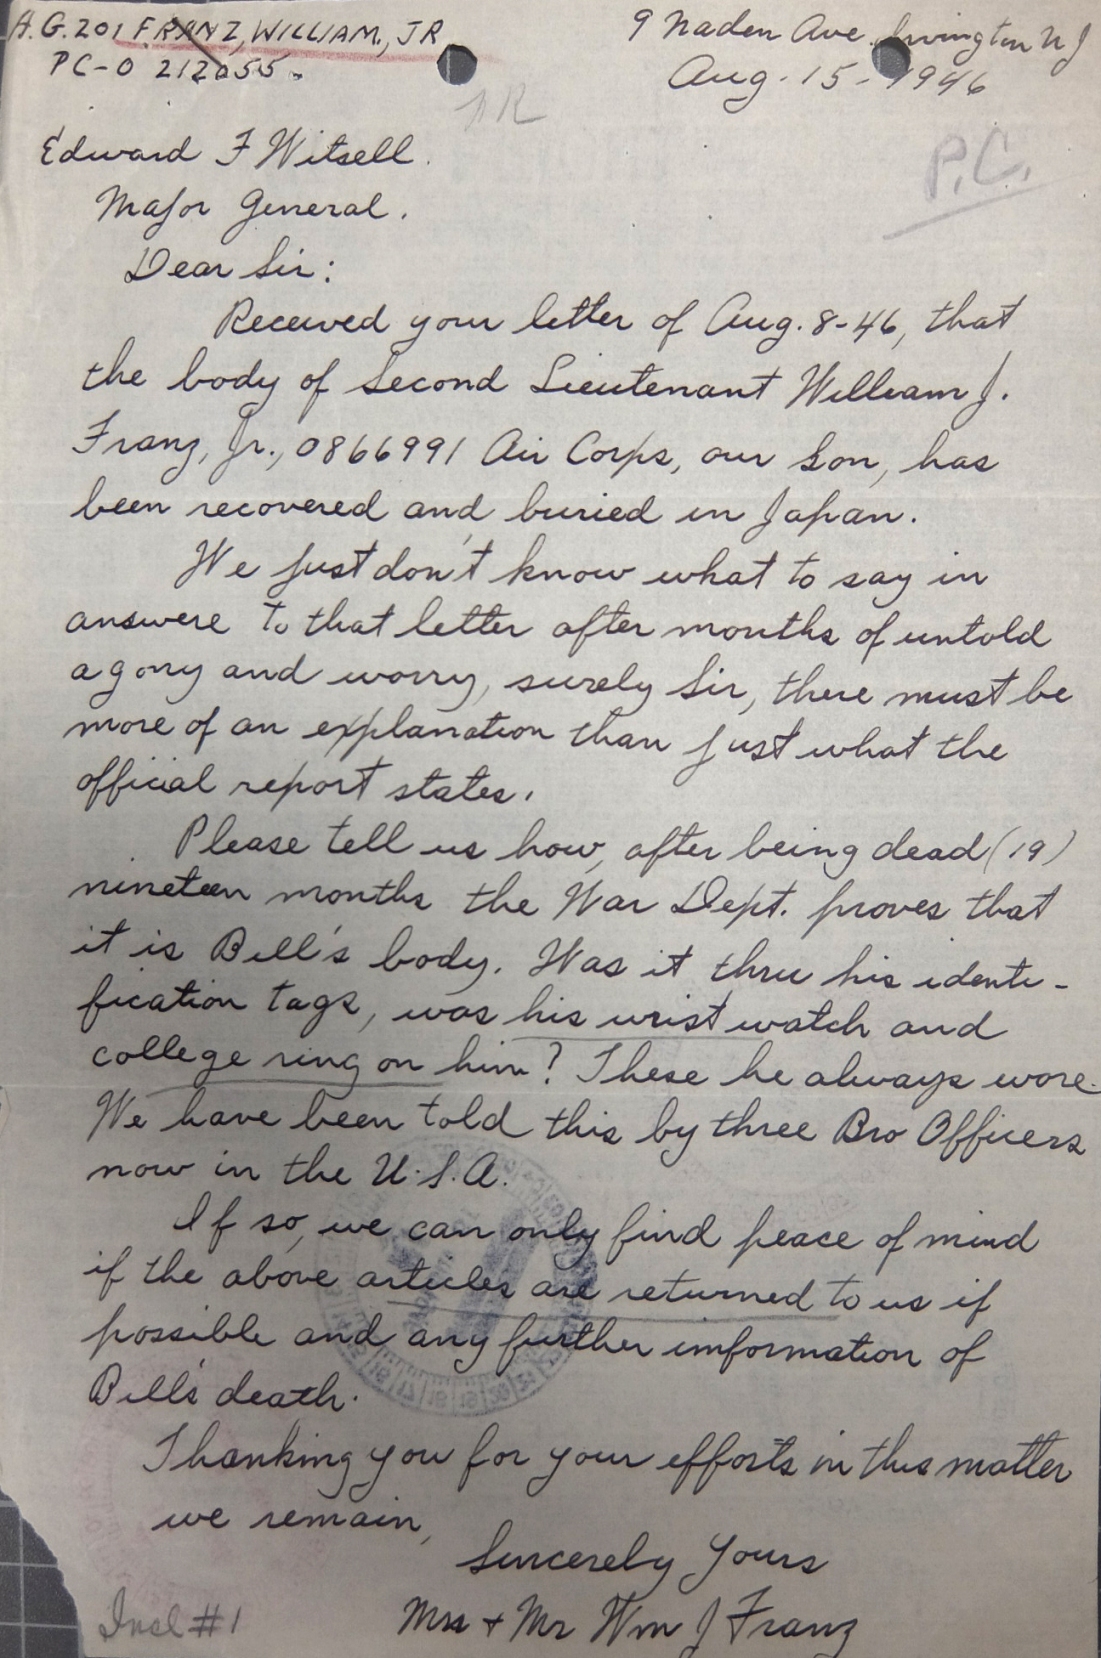 A.G. 201 FRANZ, WILLIAM, JR
PC-O 212055.
9 Naden Ave. Irvington N J
Aug. 15 - 1946
P.C.
Edward F Witsell.
Major General.
Dear Sir:
Received your letter of Aug. 8-46, that
the body of Second Lieutenant William J.
Franz, Jr., 0866991 Air Corps, our Son, has
been recovered and buried in Japan.
We just don't know what to say in
answere to that letter after months of untold
agony and worry, surely Sir, there must be
more of an explanation than just what the
official report states.
Please tell us how, after being dead (19)
nineteen months the War Dept. proves that
it is Bill's body. Was it thru his identi-
fication tags, was his wrist watch and
college ring on him? These he always wore.
We have been told this by three Bro Officers
now in the U.S.A.
If so, we can only find peace of mind
if the above articles are returned to us if
possible and any further imformation of
Bill's death.
Thanking you for your efforts in this matter
we remain,
Sincerely Yours
Mrs + Mr Wm J Franz
Incl #1